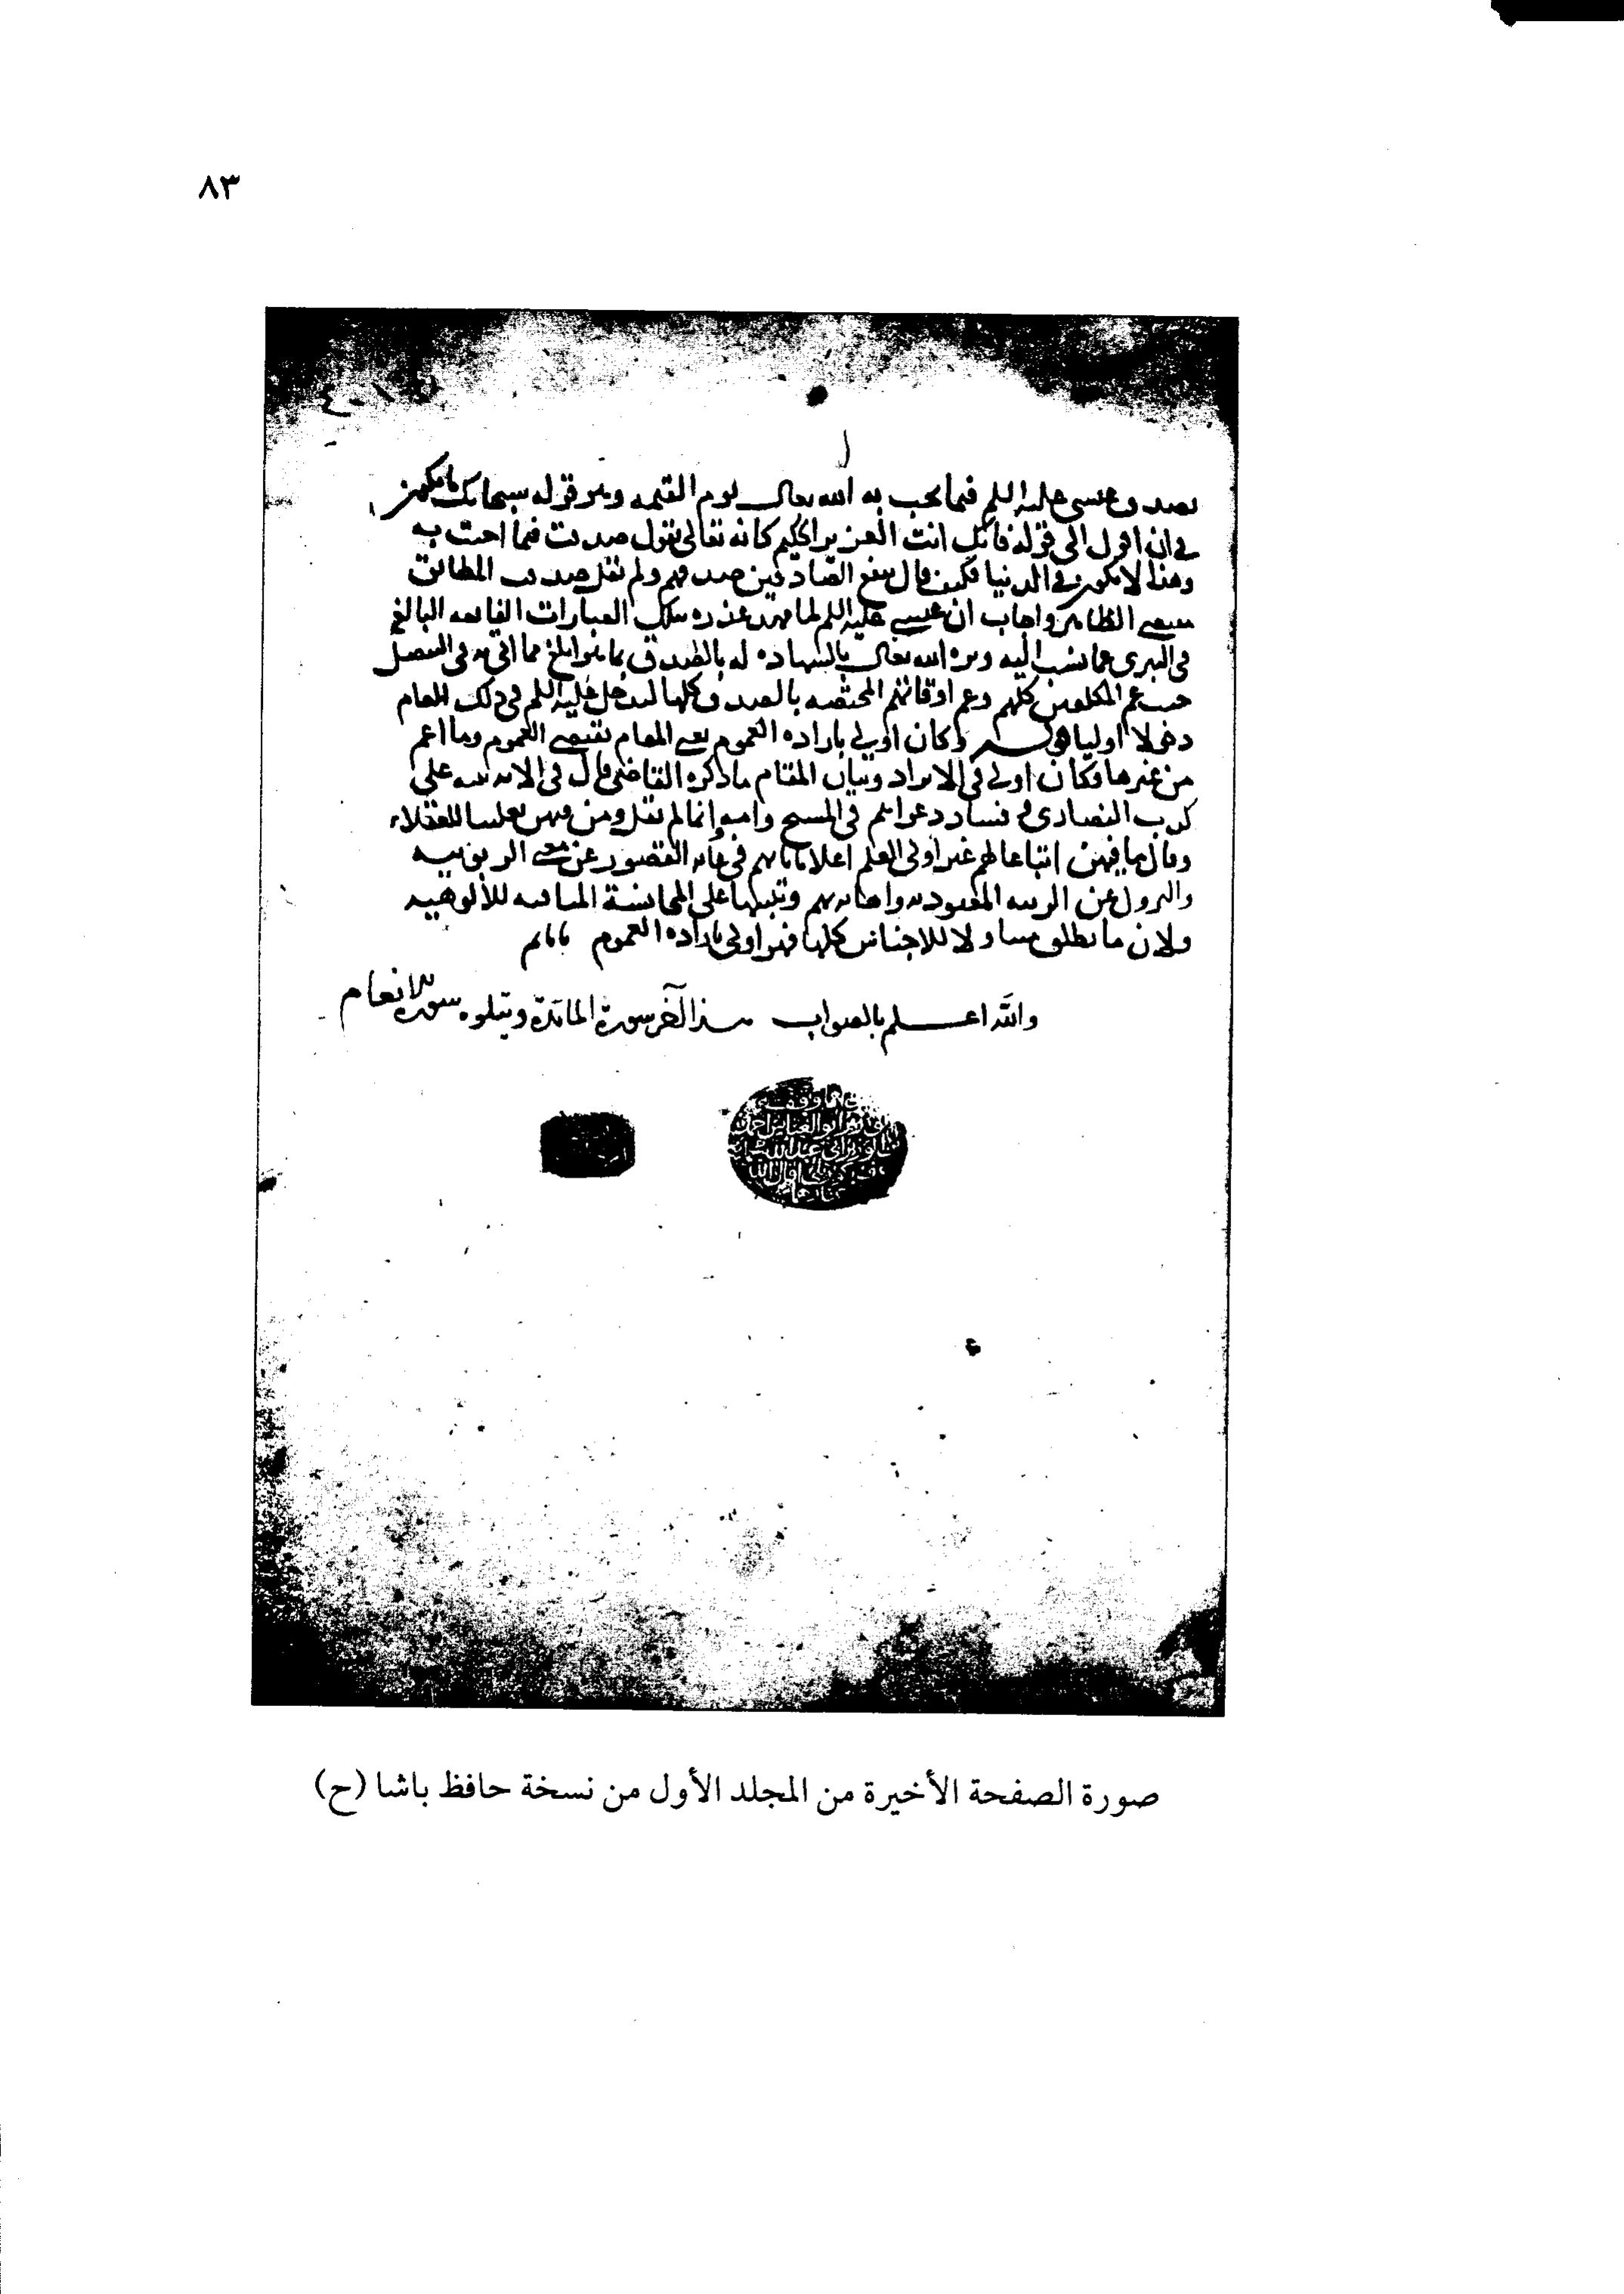 ٨٣
صدق عيسى عليه السلم فيما يجيب به الله تعالى يوم القيمة وهو قوله سبحانك ما يكون
لي ان اقول الى قوله فانك انت العزيز الحكيم كانه تعالى يقول صدقت فيما اجبت به
وهذا لا يكون في الدنيا فكيف قال ينفع الصادقين صدقهم ولم يقل صدقت المطابق
الظاهر واجاب ان عيسى عليه السلم لما مهد عذره بتلك العبارات الفايقه البالغه
في التبرى مما نسب اليه الله تعالى بالشهاده له بالصدق بما هو ابلغ مما اتى به في التنصل
حيث عم المكلفين كلهم وعم اوقاتهم المختصه بالصدق كلها ليدخل عليه السلم في ذلك المقام
دخولا اوليا قوله وكان اولى باراده العموم يعنى المقام يقتضى العموم وما اعم
من غيرها فكان اولى في الايراد وبيان المقام ما ذكره القاضى قال في الايه تنبيه على
كذب النصارى وفساد دعواهم في المسيح وامه وانما لم يقل ومن فيهن تغليبا للعقلاء
وقال وما فيهن اتباعا لهم غير اولى العلم اعلاما بانهم في غايه القصور عن معنى الربوبيه
والنزول عن الرتبه المعبوديه واهانه بهم وتنبيها على المجانسة المنافيه للالوهيه
ولان ما يطلق متناولا للاجناس كلها فهو اولى باراده العموم
والله اعلم بالصواب هذا آخر سورة المائدة ويتلوه سورة الانعام
صورة الصفحة الأخيرة من المجلد الأول من نسخة حافظ باشا (ح)